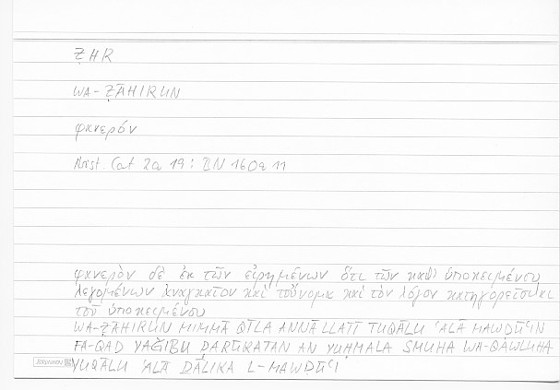 ẒHR
WA-ẒĀHIRUN
φανερόν
Arist. Cat 2a 19 : BN 160a 11
φανερὸν δὲ ἐκ τῶν εἰρημένων ὅτι τῶν καθ' ὑποκειμένου
λεγομένων ἀναγκαῖον καὶ τοὔνομα καὶ τὸν λόγον κατηγορεῖσθαι
τοῦ ὑποκειμένου
WA-ẒĀHIRUN MIMMĀ QĪLA ANNA LLATĪ TUQĀLU ʿALĀ MAWḌŪʿIN
FA-QAD YAǦIBU ḌARŪRATAN AN YUḤMALA SMUHA WA-QAWLUHA
YUQĀLU ʿALĀ ḎĀLIKA L-MAWḌŪʿI